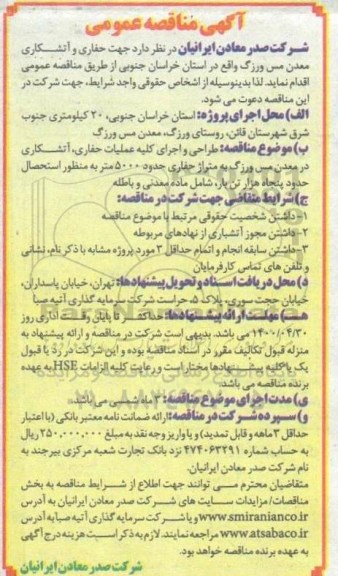 آگهی مناقصه عمومی
شرکت صدر معادن ایرانیان در نظر دارد جهت حفاری و آتشکاری
معدن مس ورزگ واقع در استان خراسان جنوبی از طریق مناقصه عمومی
اقدام نماید. لذا بدینوسیله از اشخاص حقوقی واجد شرایط، جهت شرکت در
این مناقصه دعوت می شود.
الف) محل اجرای پروژه: استان خراسان جنوبی، ۲۰ کیلومتری جنوب
شرق شهرستان قائن، روستای ورزگ، معدن مس ورزگ
ب) موضوع مناقصه: طراحی و اجرای کلیه عملیات حفاری، آتشکاری
در معدن مس ورزگ به متراژ حفاری حدود ۵۰۰۰ متر به منظور استحصال
حدود پنجاه هزار تن بار، شامل ماده معدنی و باطله
ج) شرایط متقاضی جهت شرکت در مناقصه:
۱- داشتن شخصیت حقوقی مرتبط با موضوع مناقصه
۲- داشتن مجوز آتشباری از نهادهای مربوطه
۳- داشتن سابقه انجام و اتمام حداقل ۳ مورد پروژه مشابه با ذکر نام، نشانی
و تلفن های تماس کارفرمایان
د) محل دریافت اسناد و تحویل پیشنهادها: تهران، خیابان پاسداران،
خیابان حجت سوری، پلاک ۵، حراست شرکت سرمایه گذاری آتیه صبا
هـ) مهلت ارائه پیشنهادها: حداکثر تا پایان وقت اداری روز
۱۴۰۰/۰۴/۳۰ می باشد. بدیهی است شرکت در مناقصه و ارائه پیشنهاد به
منزله قبول تکالیف مقرر در اسناد مناقصه بوده و این شرکت در رد یا قبول
یک یا کلیه پیشنهادها مختار است و رعایت کلیه الزامات HSE به عهده
برنده مناقصه می باشد.
ی) مدت اجرای موضوع مناقصه: ۳ ماه شمسی می باشد.
و) سپرده شرکت در مناقصه: ارائه ضمانت نامه معتبر بانکی (با اعتبار
حداقل ۳ ماهه و قابل تمدید) و یا واریز وجه نقد به مبلغ ۲۵۰،۰۰۰،۰۰۰ ریال
به حساب شماره ۴۷۴۰۶۳۲۹۱ نزد بانک تجارت شعبه مرکزی بیرجند به
نام شرکت صدر معادن ایرانیان.
متقاضیان محترم می توانند جهت اطلاع از شرایط مناقصه به بخش
مناقصات/مزایدات سایت های شرکت صدر معادن ایرانیان به آدرس
www.smiranianco.ir و یا شرکت سرمایه گذاری آتیه صبا به آدرس
www.atsabaco.ir مراجعه نمایند. لازم به ذکر است هزینه درج آگهی
به عهده برنده مناقصه خواهد بود.
شرکت صدر معادن ایرانیان